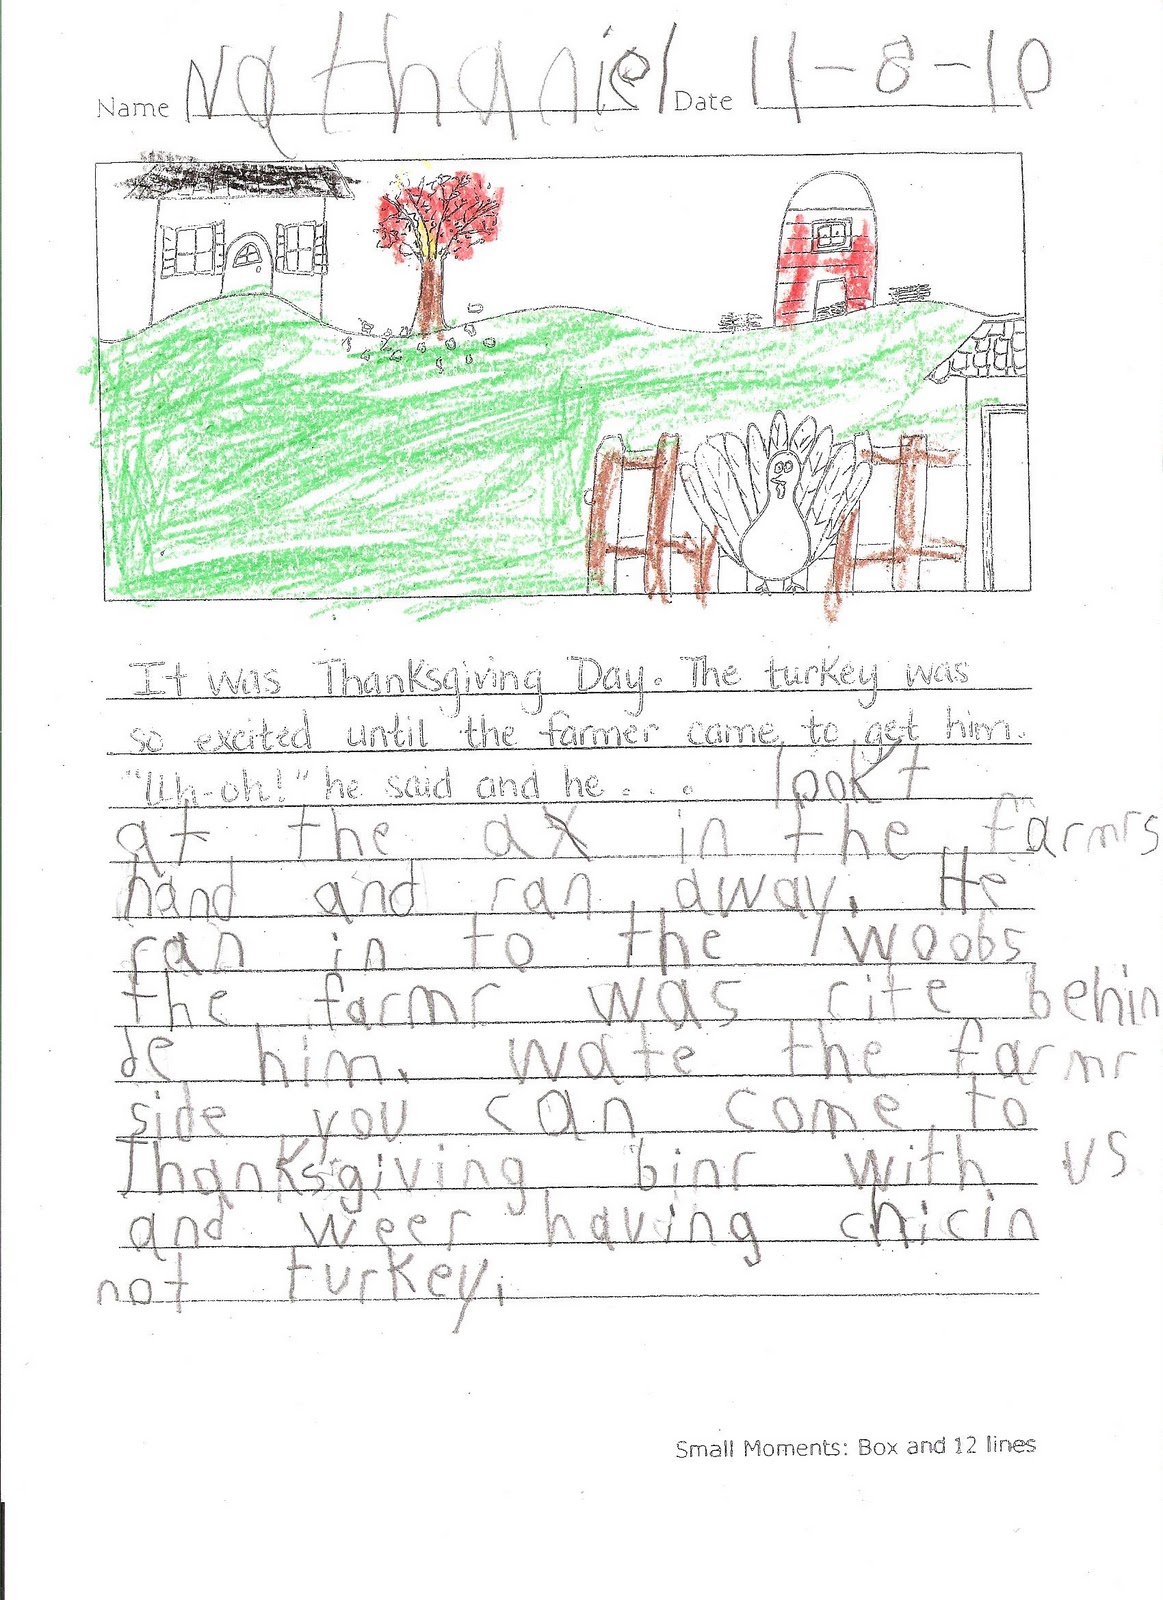 Name Nathaniel Date 11-8-10
It was Thanksgiving Day. The turkey was
so excited until the farmer came to get him.
"Uh-oh!" he said and he... lookt
at the ax in the farmrs
hand and ran away. He
ran in to the woobs
the farmr was rite behin
de him. wate the farmr
side you can come to
Thanksgiving binr with us
and weer having chicin
not turkey.
Small Moments: Box and 12 lines